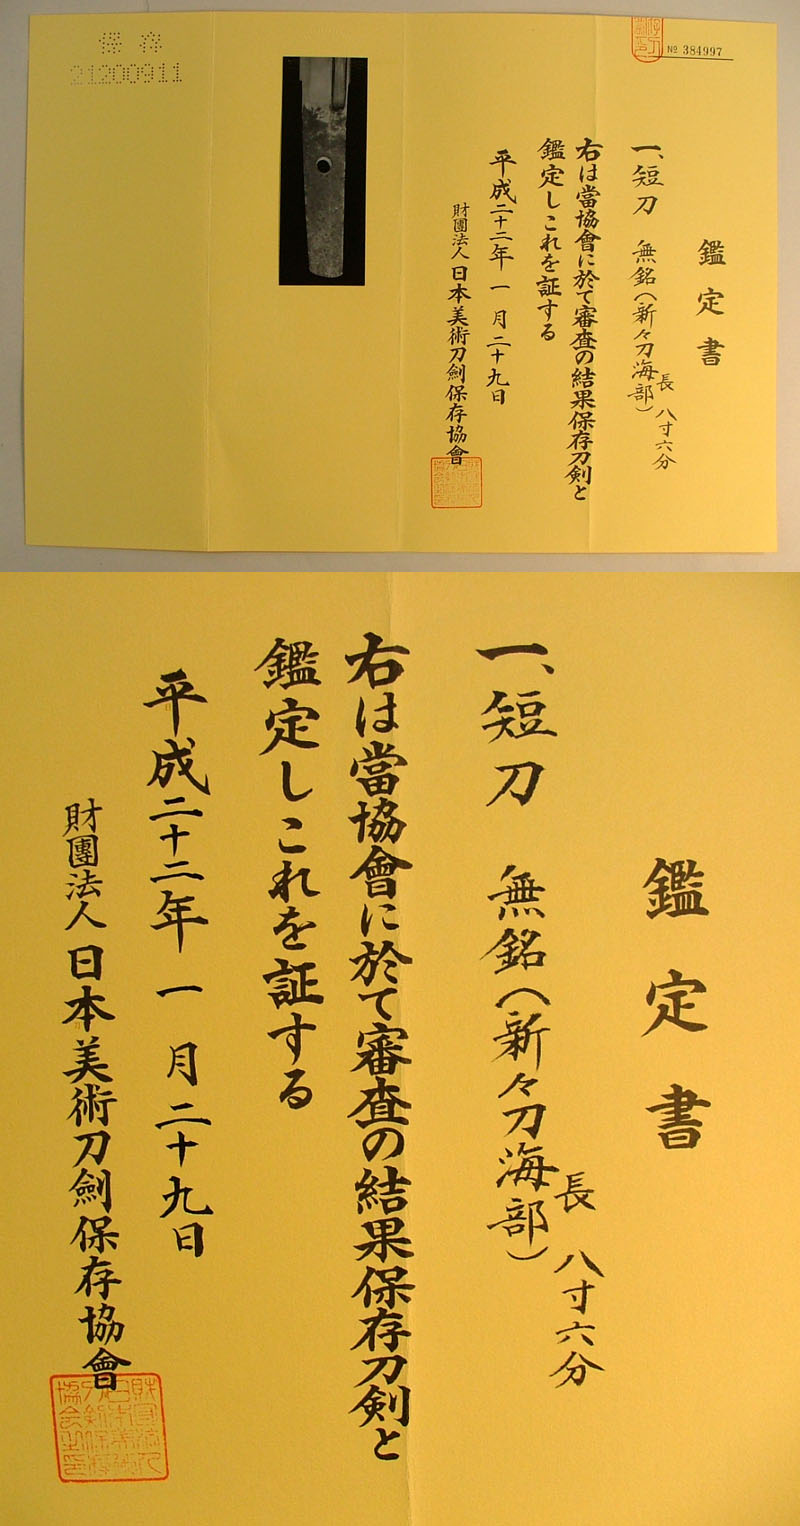 保存
21200911
№ 384997
鑑定書
一、短刀 無銘(新々刀海部)
長 八寸六分
右は當協會に於て審査の結果保存刀剣と
鑑定しこれを証する
平成二十二年一月二十九日
財團法人日本美術刀劍保存協會
鑑定書
一、短刀 無銘(新々刀海部)
長 八寸六分
右は當協會に於て審査の結果保存刀剣と
鑑定しこれを証する
平成二十二年一月二十九日
財團法人日本美術刀劍保存協會